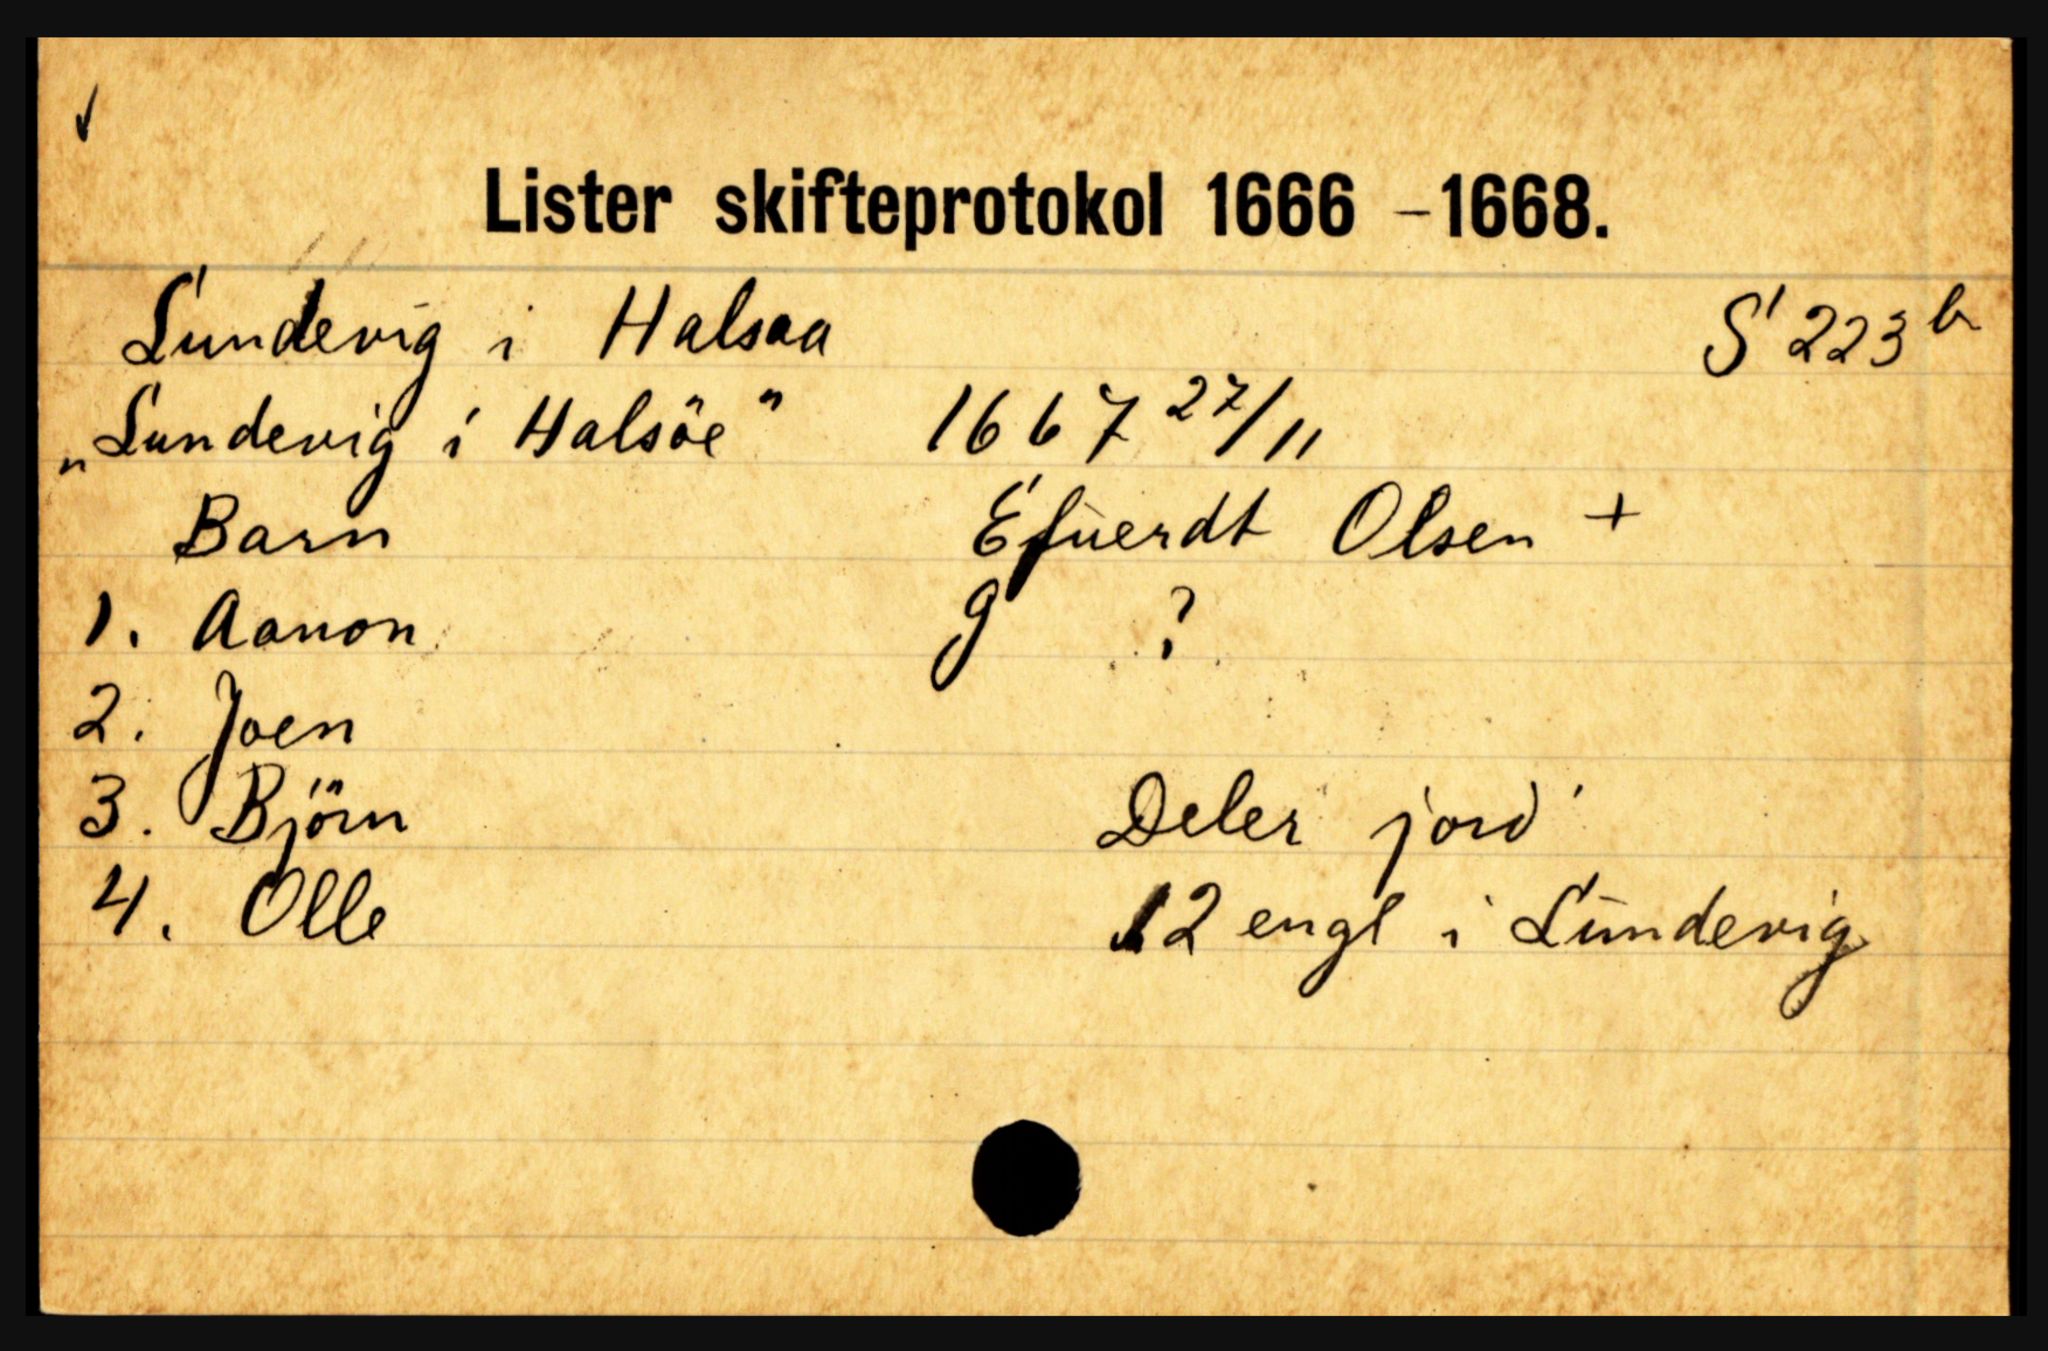 Lister skifteprotokol 1666 - 1668.
Lundevig i Halsaa S 223 b
"Lundevig i Halsöe" 1667 27/11
Barn Efuerdt Olsen +
1. Aanon g ?
2. Joen
3. Björn Deler jord
4. Olle 12 engl i Lundevig